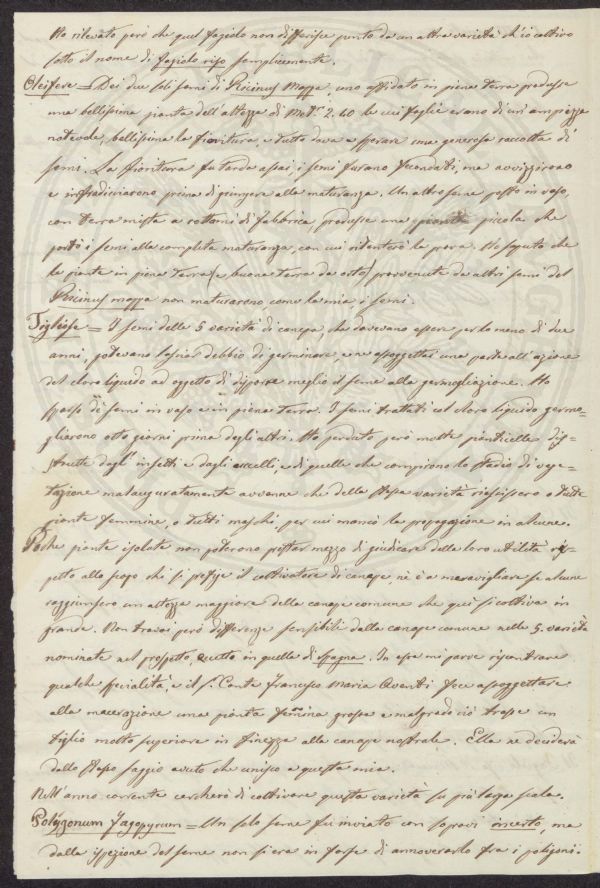 Ho rilevato però che quel fagiolo non differisce punto da un altra varietà ch'io coltivo
sotto il nome di fagiolo riso semplicemente.
Oleifere = Dei due soli semi di Ricinus Mappa, uno affidato in piena terra produsse
una bellissima pianta dell'altezza di Met. 2.40 le cui foglie erano di un'ampiezza
notevole, bellissima la fioritura, e tutto dava a sperare una generosa raccolta di
semi. La fioritura fu tarda assai, i semi furono fecondati, ma avvizzirono
e infradiciarono prima di giungere alla maturanza. Un altro seme posto in vaso,
con terra mista a rottami di fabbrica, produsse una pianta piccola che
portò i semi alla completa maturanza, con cui ritenterò la prova. Ho saputo che
le piante in piena terra (e buona terra da orto) provenute da altri semi del
Ricinus mappa non maturarono come la mia i semi.
Tigliose = I semi delle 5 varietà di canepa che dovevano essere per lo meno di due
anni, potevano lasciar dubbio di germinare, e ne assoggettai una parte all'azione
del cloro liquido ad oggetto di disporre meglio il seme alla germogliazione. Ho
sparso di semi in vaso e in piena terra. I semi trattati col cloro liquido germo-
gliarono otto giorni prima degli altri. Ho perduto però molte pianticelle dis-
trutte dagl' insetti e dagli uccelli, e di quelle che compirono lo stadio di vege-
tazione malauguratamente avvenne che della stessa varietà riescissero o tutte
piante femmine, o tutti maschi, per cui mancò la propagazione in alcune.
Poche piante isolate non poterono prestar mezzo di giudicare della loro utilità ris-
petto allo scopo che si prefigge il coltivatore di canape nè è a meravigliare se alcune
raggiunsero un altezza maggiore della canape comune che qui si coltiva in
grande. Non trovai però differenze sensibili dalla canape comune nelle 5. varietà
nominate nel prospetto, eccetto in quella di Spagna. In essa mi parve riscontrare
qualche specialità, e il S. Conte Francesco Maria Aventi fece assoggettare
alla macerazione una pianta femmina grossa e malgrado ciò trasse un
tiglio molto superiore in finezza alla canape nostrale. Ella ne deciderà
dallo stesso saggio avuto che unisco a questa mia.
Nell'anno corrente cercherò di coltivare questa varietà su più larga scala.
Polygonum Fagopyrum = Un solo seme fu inviato con sopravi incerto, ma
dalla ispezione del seme non si era in forse di annoverarlo fra i poligoni.